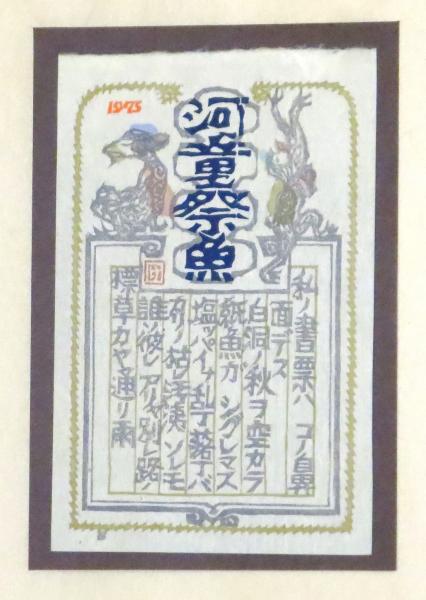 1975
河童祭魚
私ノ書票ハ コノ鼻
面デス
白洞ノ秋ヲ空カラ
紙魚ガ シグレマス
塩ッパイナ乱丁落丁バ
カリノ枯 ソレモ
誰ソ彼レ アリャ別レ路ノ
標草カヤ通リ雨